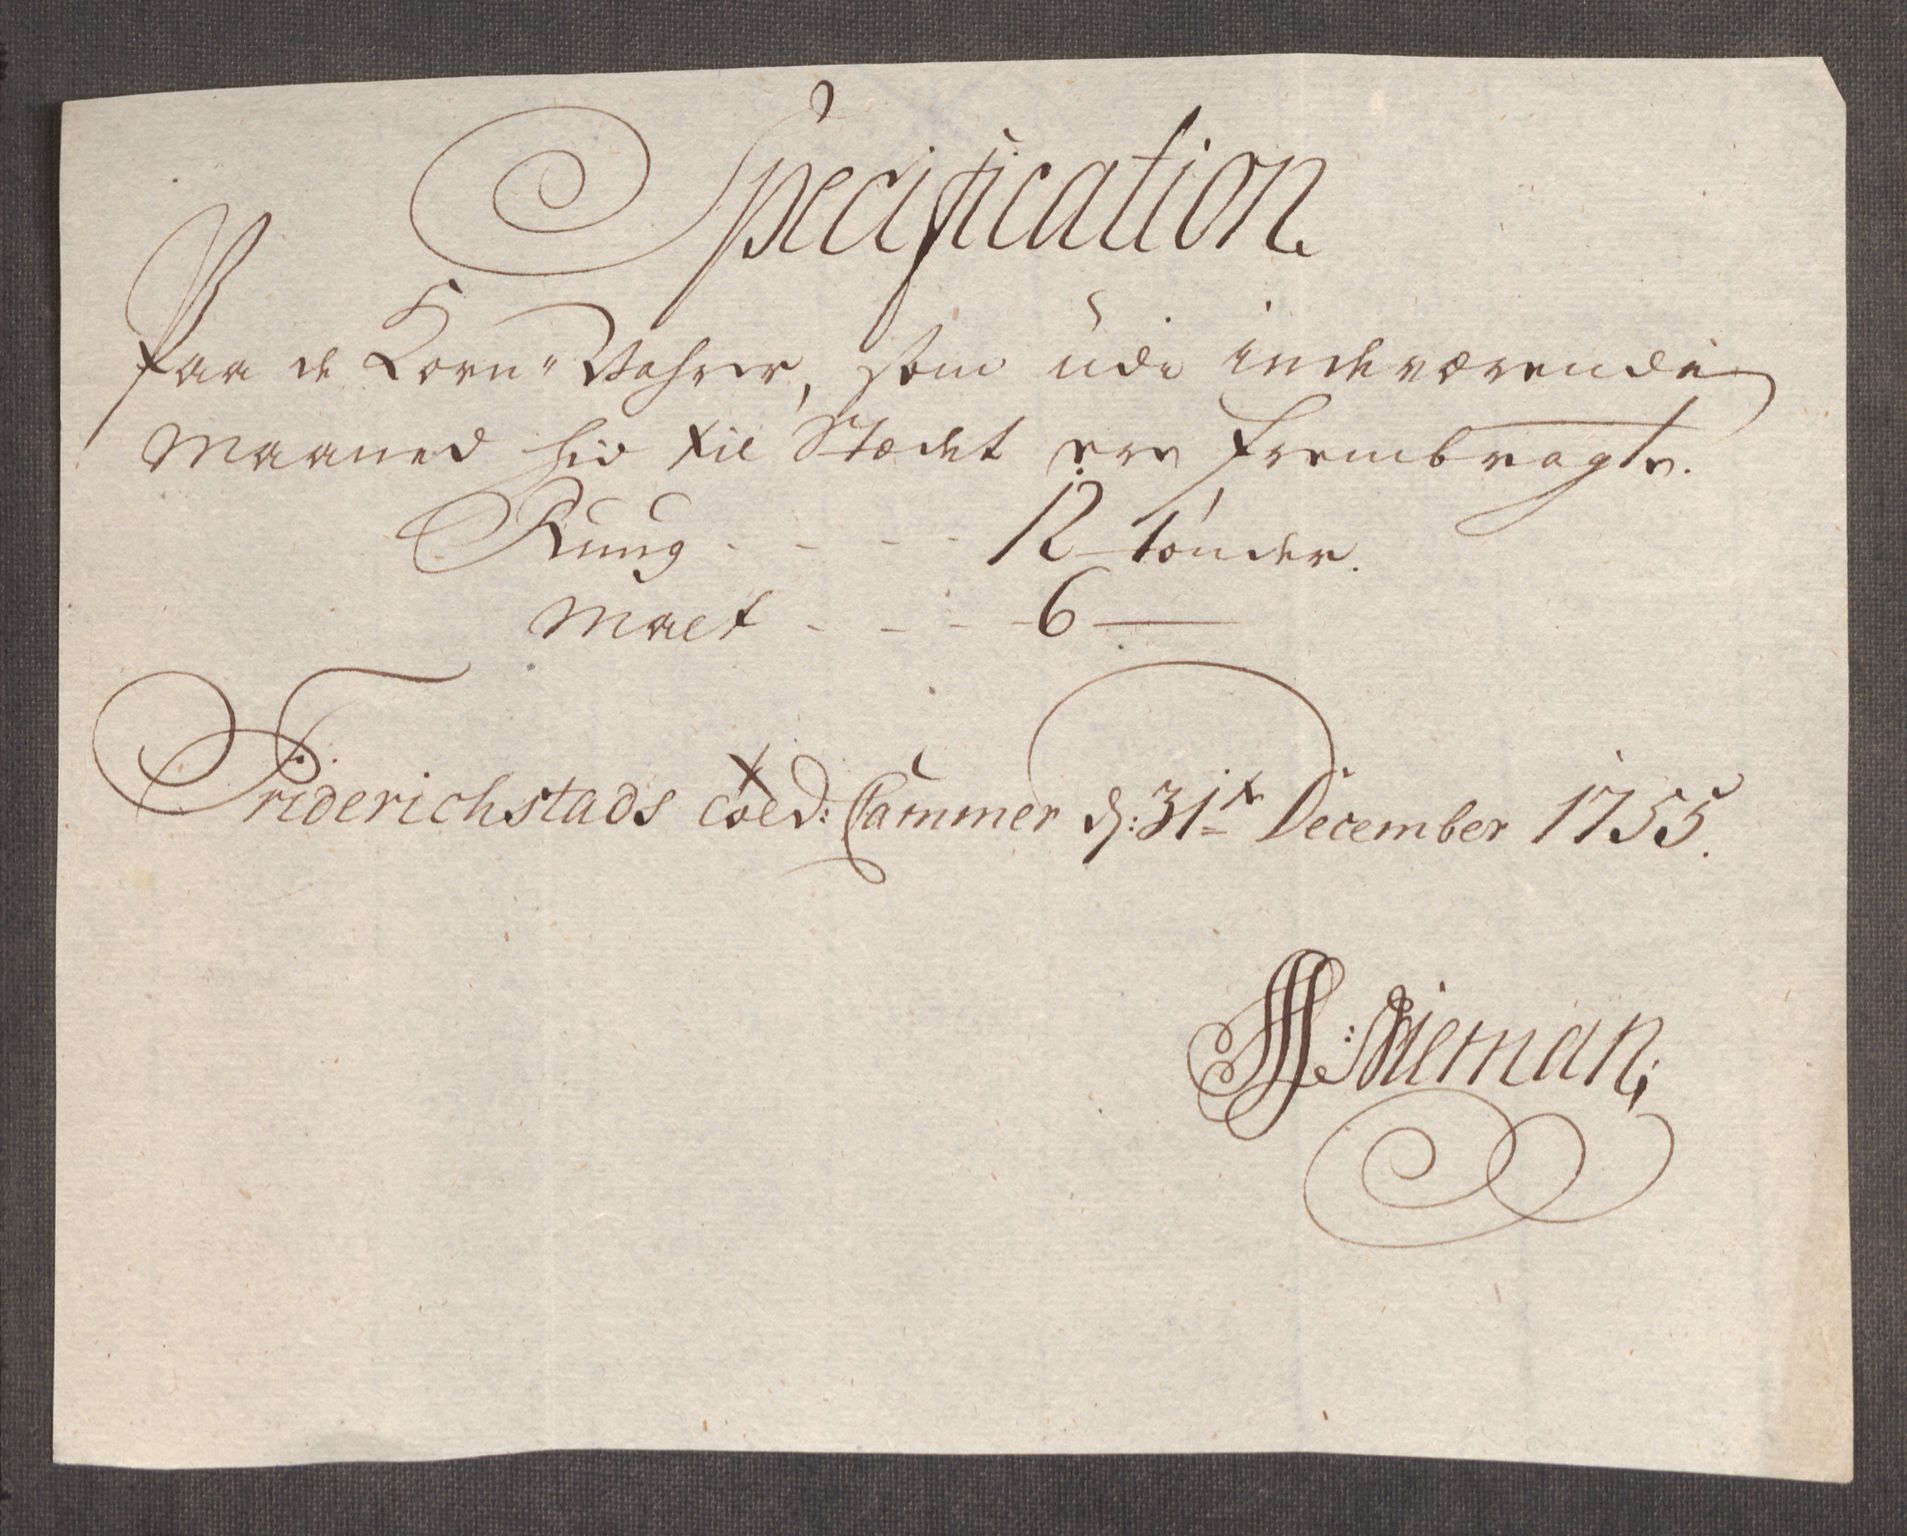 Specification
Paa de Korn-Vahrer, som udi indeværende
Maaned hid til Stædet ere frembragte.
Rung - - - - 12 tønder.
Malt - - - - 6 —
Friderichstads Told: Cammer d: 31te December 1755.
Nieman